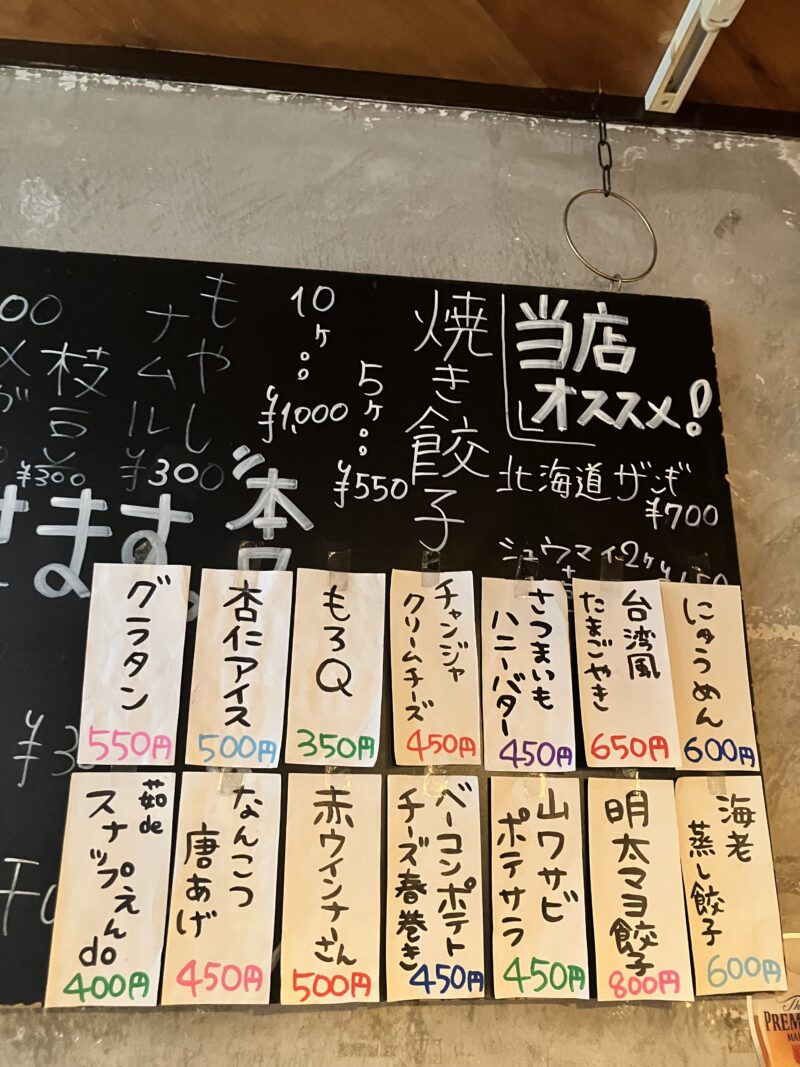 当店
オススメ!
北海道ザンギ
¥700
シュウマイ2ケ
焼き餃子
5ケ。。
¥550
10ケ。。
¥1,000
もやし
ナムル
¥300
枝豆
¥300
00
せます。
にゅうめん
600円
台湾風
たまごやき
650円
さつまいも
ハニーバター
450円
チャンジャ
クリームチーズ
450円
もろQ
350円
杏仁アイス
500円
グラタン
550円
海老
蒸し餃子
600円
明太マヨ餃子
800円
山ワサビ
ポテサラ
450円
ベーコンポテト
チーズ春巻き
450円
赤ウインナーさん
500円
なんこつ
唐あげ
450円
茹de
スナップえんdo
400円
¥3
The
PREM